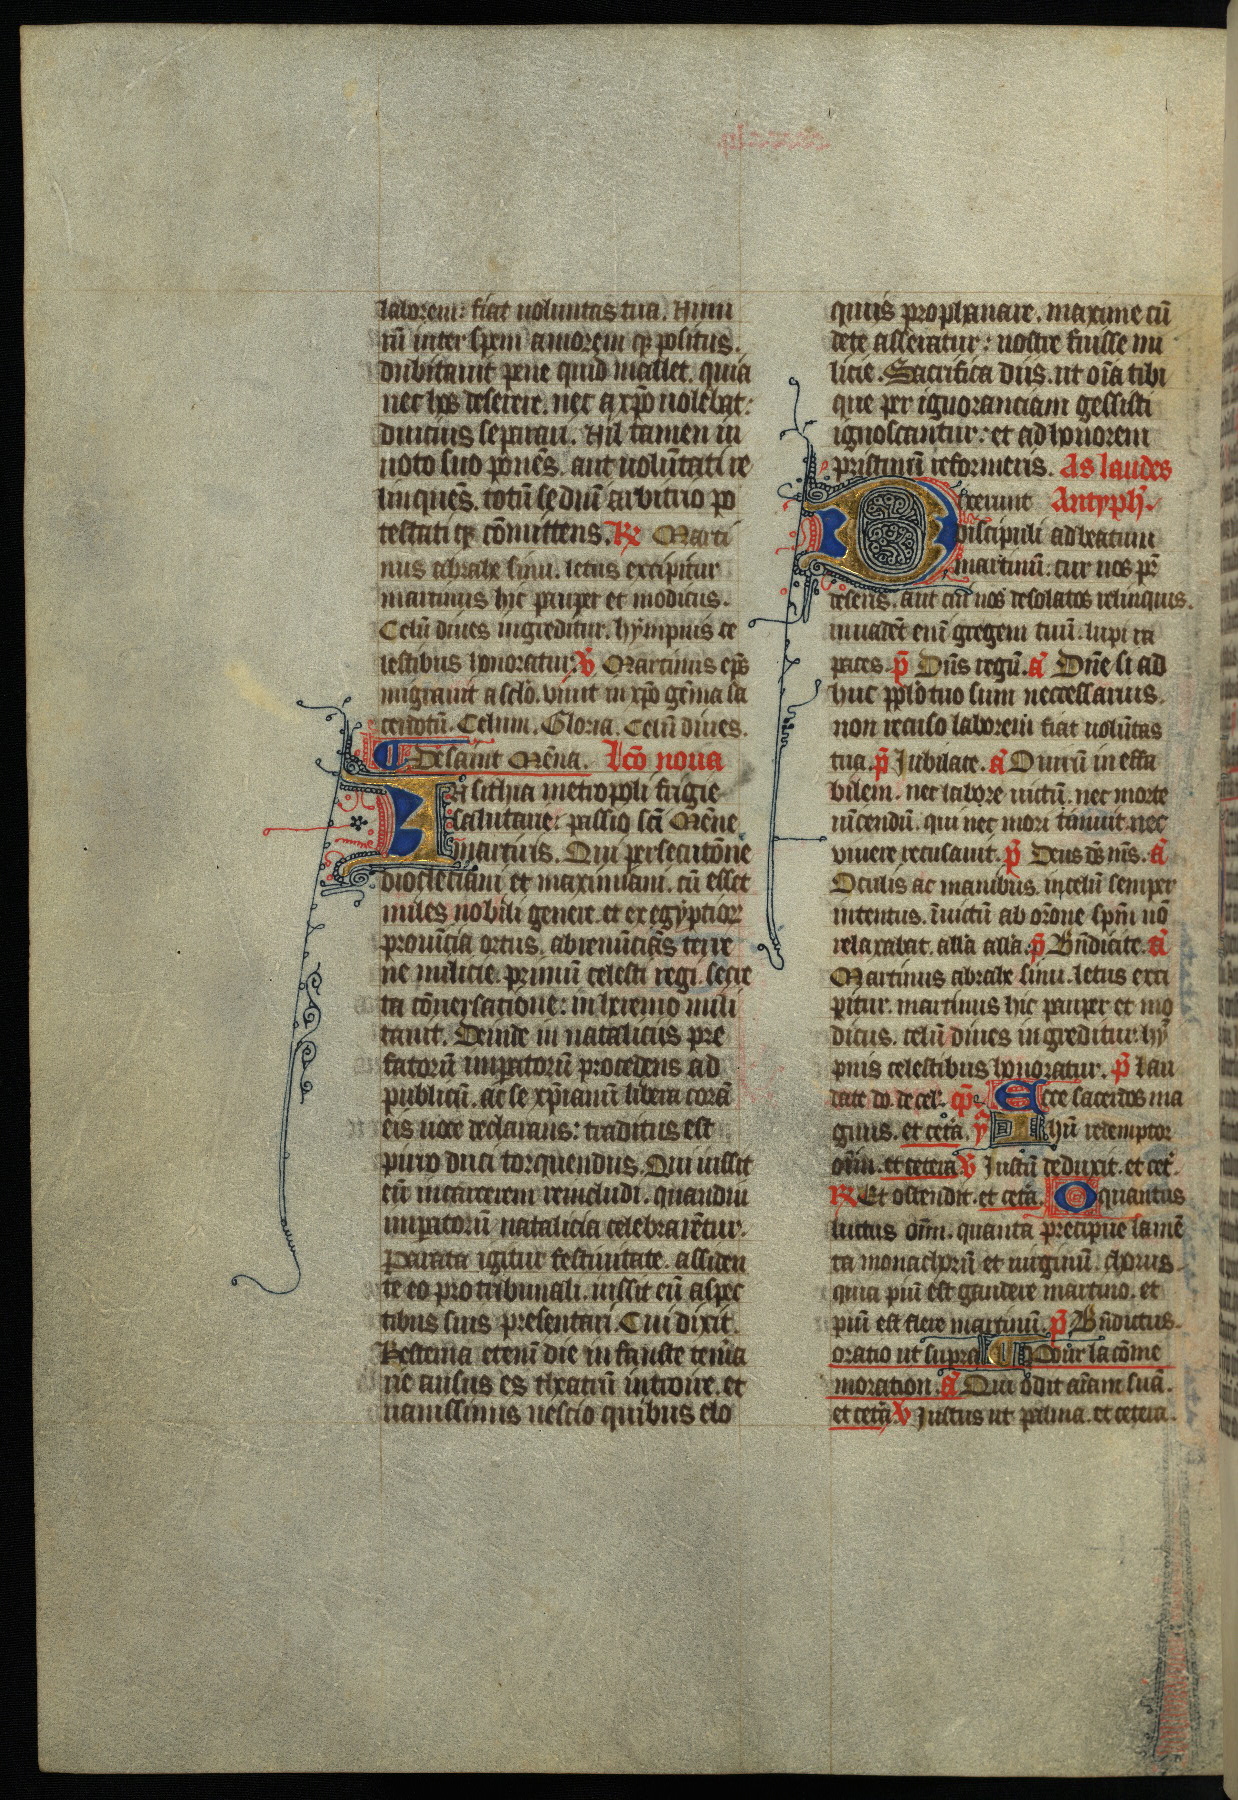 laborem: fiat uoluntas tua. Nimi
rū inter spem amorem qꝫ positus.
dubitauit pene quid mallet. quia
nec hos deserere. nec a xp̄o uolebat:
diucius separari. Nil tamen in
uoto suo ponēs. aut uolūtati re
linquēs. totū se diuī arbitrio po
testati qꝫ cōmittens. R Marti
nus abrahe sinu. letus excipitur
martinus hic pauper et modicus.
Celū diues ingreditur. hympnis ce
lestibus honoratur. V Martinus ep̄s
migrauit a sclō. viuit in xp̄o gēma sa
cerdotū. Celum. Gloria. Celū diues.
De saint Mēna. Lc̄o noua
In sithia metropoli frigie
salutarie: passio scī Mēne
martiris. Qui persecutōne
diocletiani et maximiani. cū esset
miles nobili genere. et ex egyptior
prouīcia ortus. abrenūciās terre
ne milicie. primū celesti regi. secre
ta cōuersatione: in heremo mili
tauit. Deinde in nataliciis pre
fatorū imp̄atorū procedens ad
publicū. ac se xp̄ianū libera corā
eis uoce declarans: traditus est
pirro duci torquendus. Qui iussit
eū in carcerem remcludi. quandiu
imp̄atorū natalicia celebrarētur.
Parata igitur festiuitate. assiden
te eo pro tribunali. iussit eū aspec
tibus suis presentari. Cui dixit.
Hesterna etenī die in fauste temia
ne ausus es theatrū introire. et
uanissimis nescio quibus elo
quiis prophanare. maxime cū
de te asseratur: nostre fuisse mi
licie. Sacrifica diis. ut oīa tibi
que per ignoranciam gessisti
ignoscantur: et ad honorem
pristinū reformeris. As laudes
Dixerunt Antyph̄.
discipuli ad beatum
martinū: cur nos pr̄
deseris. aut cui nos desolatos relinquis.
inuadēt enī gregem tuū. lupi ra
paces. p̄ Dn̄s regū. a Dn̄e si ad
huc pplo tuo sum neccessarius.
non recuso laborem fiat uolūtas
tua. p̄ Jubilate. a O uirū in effa
bilem. nec labore uictū. nec morte
uīcendū. qui nec mori timuit nec
viuere recusauit. p̄ Deus ds̄ ms̄. a
Oculis ac manibus. in celū semper
intentus. īuictū ab orōne sp̄m nō
relaxabat. alla alla. p̄ Bn̄dicite. a
Martinus abrahe sinu. letus exci
pitur. martinus hic pauper et mo
dicus. celū diues in greditur. hy
pnis celestibus honoratur. p̄ Lau
date do. de cel. cp̄. Ecce sacerdos ma
gnus. et cetā. y Ihū redemptor
oīm. et cetera V Justū deduxit. et cet.
R Et ostendit. et cetā. O quantus
luctus oīm. quanta precipue lamē
ta monachorū et uirginū. chorus
quia piū est gaudere martino. et
piū est flere martinū. p̄ Bn̄dictus.
oratio ut supra Pour la cōme
moration. a Qui odit aīam suā.
et cetā V Justus ut palma. et cetera.